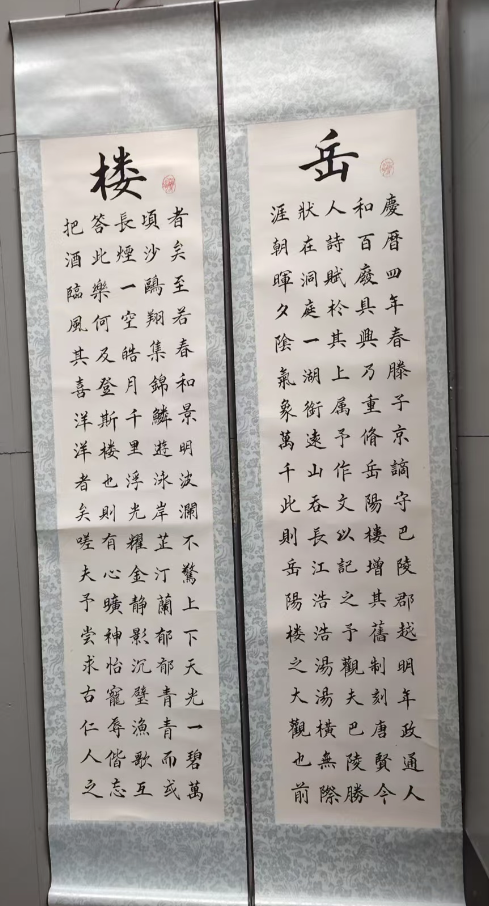 岳
慶曆四年春滕子京謫守巴陵郡越明年政通人
和百廢具興乃重脩岳陽樓增其舊制刻唐賢今
人詩賦於其上属予作文以記之予觀夫巴陵勝
狀在洞庭一湖銜遠山吞長江浩浩湯湯橫無際
涯朝暉夕陰氣象萬千此則岳陽楼之大觀也前
楼
者矣至若春和景明波瀾不驚上下天光一碧萬
頃沙鷗翔集錦鱗遊泳岸芷汀蘭郁郁青青而或
長煙一空皓月千里浮光耀金静影沉璧漁歌互
答此樂何及登斯楼也則有心曠神怡寵辱偕忘
把酒臨風其喜洋洋者矣嗟夫予尝求古仁人之